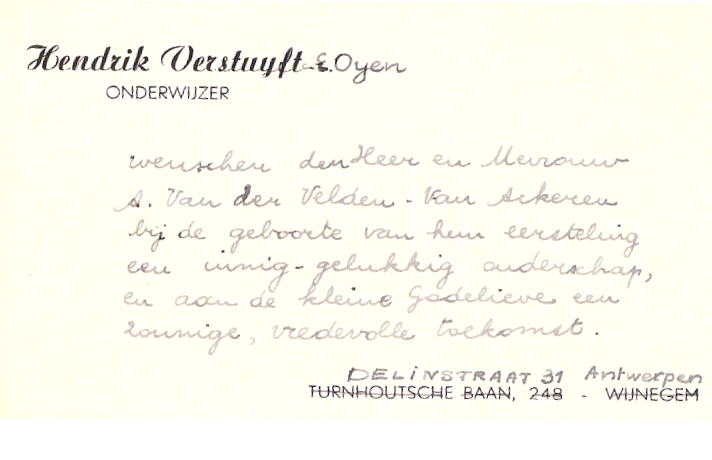 Hendrik Verstuyft - E. Oyen
ONDERWIJZER
wenschen den Heer en Mevrouw
A. Van der Velden - Van Ackeren
bij de geboorte van hun eersteling
een innig-gelukkig ouderschap,
en aan de kleine Godelieve een
zonnige, vredevolle toekomst.
DELINSTRAAT 31 Antwerpen
TURNHOUTSCHE BAAN, 248 - WIJNEGEM